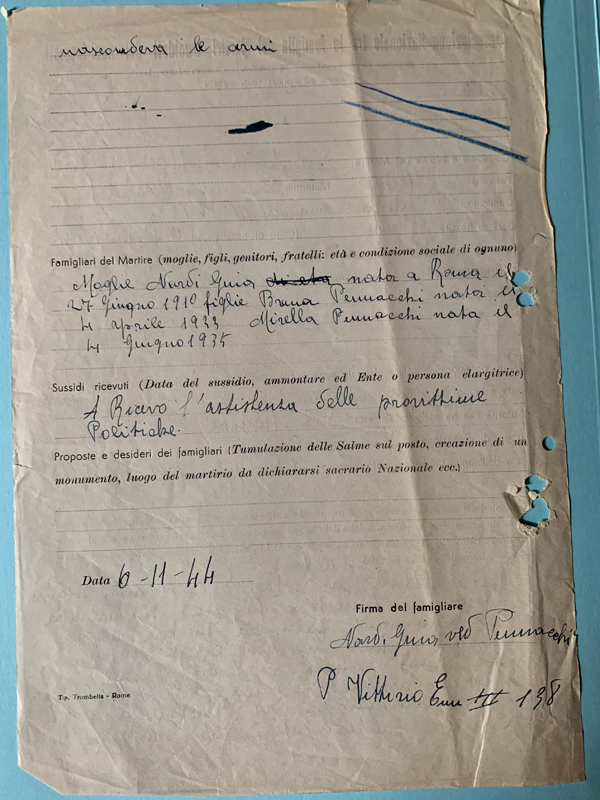 nascondeva le armi
Famigliari del Martire (moglie, figli, genitori, fratelli: età e condizione sociale di ognuno)
Moglie Nardi Guia nata a Roma il
27 Giugno 1910 figlie Bruna Pennacchi nata il
4 Aprile 1933 Mirella Pennacchi nata il
4 Giugno 1935
Sussidi ricevuti (Data del sussidio, ammontare ed Ente o persona elargitrice)
l'assistenza delle provittime
Politiche.
Proposte e desideri dei famigliari (Tumulazione delle Salme sul posto, creazione di un
monumento, luogo del martirio da dichiararsi sacrario Nazionale ecc.)
Data 6-11-44
Firma del famigliare
Nardi Guia ved Pennacchi
P Vittorio Em III 138
Tip. Trombetta - Roma